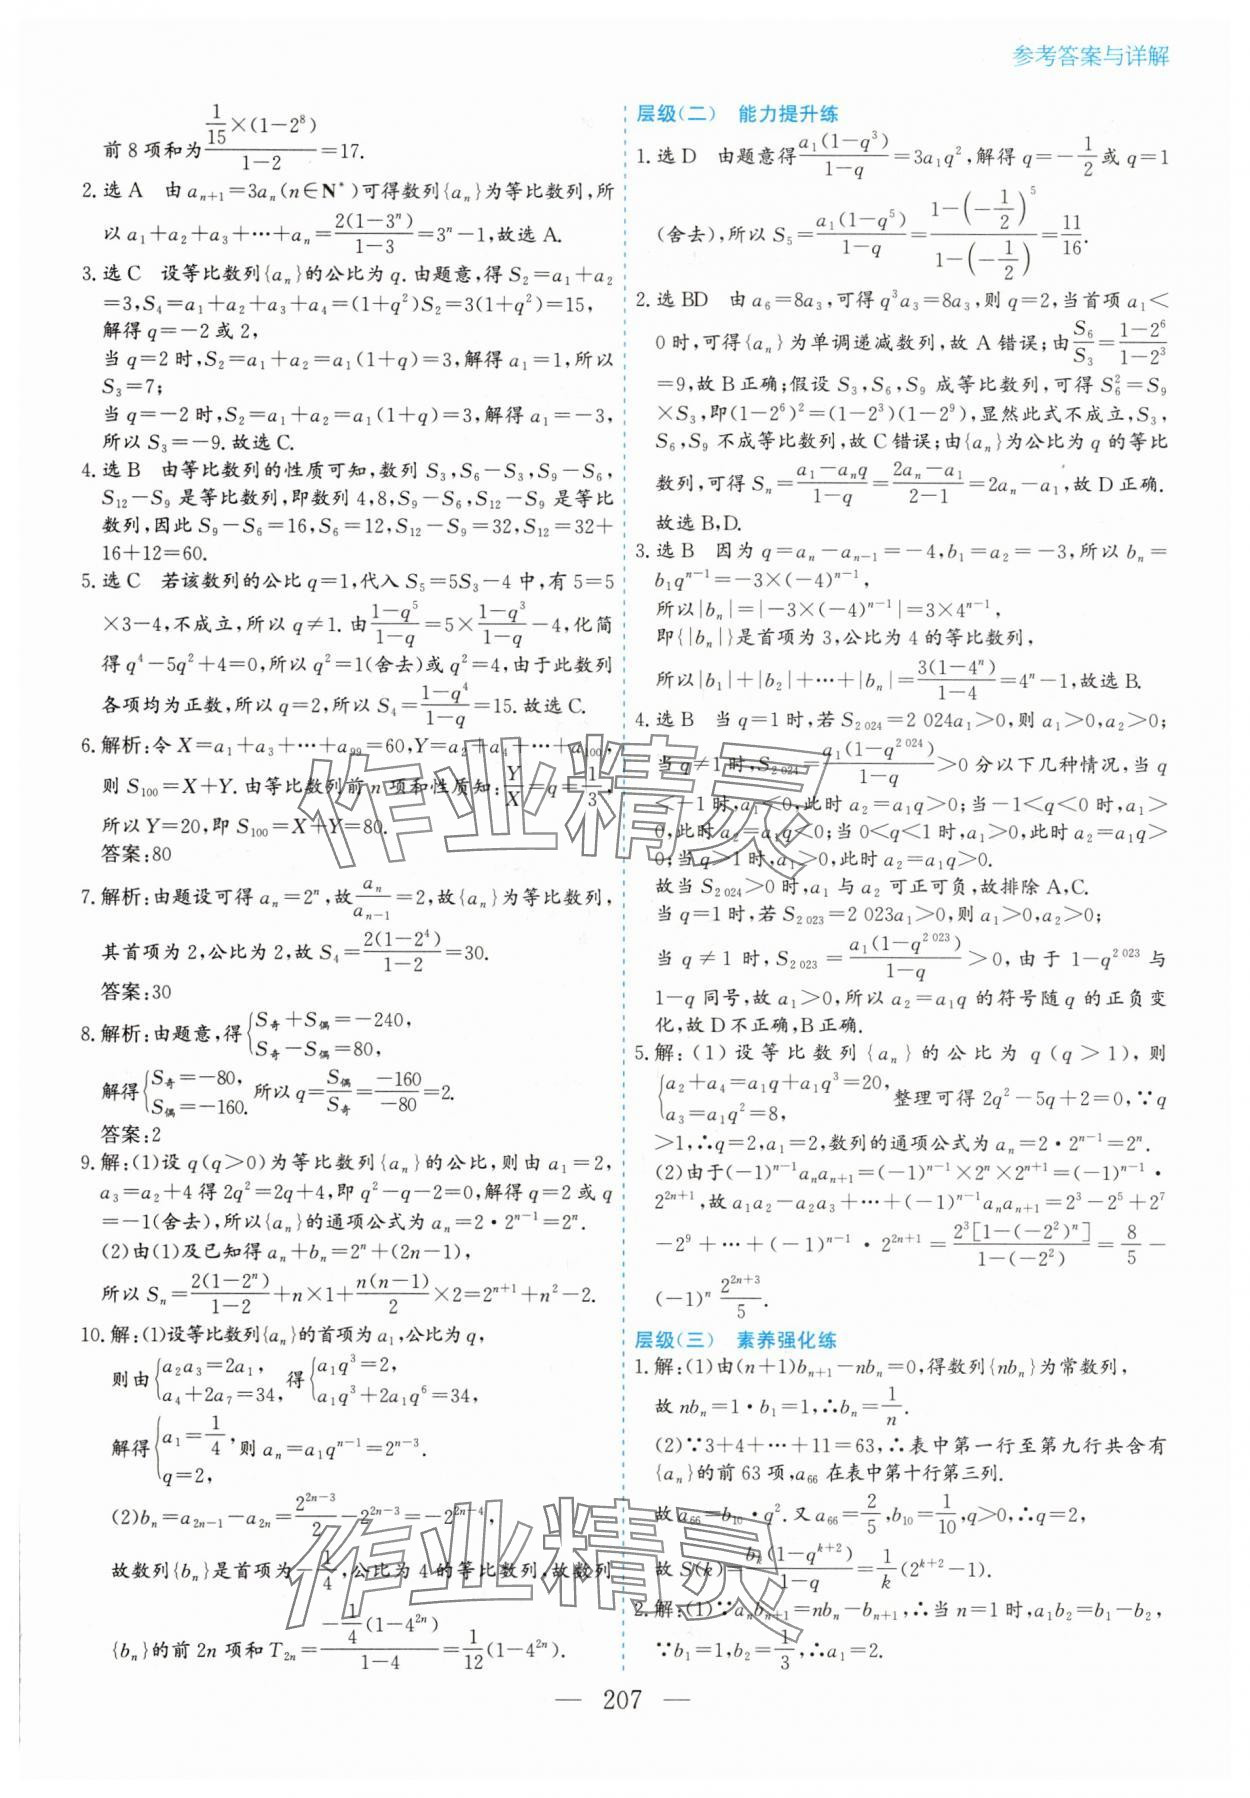 参考答案与详解
前8项和为\frac{\frac{1}{15}×(1-2^8)}{1-2}=17.
2. 选A　由 a_{n+1}=3a_n(n∈N^*)可得数列{a_n}为等比数列,所
以 a_1+a_2+a_3+…+a_n=\frac{2(1-3^n)}{1-3}=3^n-1,故选A.
3. 选C　设等比数列{a_n}的公比为 q. 由题意,得 S_2=a_1+a_2
=3,S_4=a_1+a_2+a_3+a_4=(1+q^2)S_2=3(1+q^2)=15,
解得 q=-2 或 2,
当 q=2 时,S_2=a_1+a_2=a_1(1+q)=3,解得 a_1=1,所以
S_3=7;
当 q=-2 时,S_2=a_1+a_2=a_1(1+q)=3,解得 a_1=-3,
所以 S_3=-9. 故选C.
4. 选B　由等比数列的性质可知,数列 S_3,S_6-S_3,S_9-S_6,
S_{12}-S_9 是等比数列,即数列 4,8,S_9-S_6,S_{12}-S_9 是等比
数列,因此 S_9-S_6=16,S_6=12,S_{12}-S_9=32,S_{12}=32+
16+12=60.
5. 选C　若该数列的公比 q=1,代入 S_5=5S_3-4 中,有 5=5
×3-4,不成立,所以 q≠1. 由\frac{1-q^5}{1-q}=5×\frac{1-q^3}{1-q}-4,化简
得 q^4-5q^2+4=0,所以 q^2=1(舍去)或 q^2=4,由于此数列
各项均为正数,所以 q=2,所以 S_4=\frac{1-q^4}{1-q}=15. 故选C.
6. 解析:令 X=a_1+a_3+…+a_{99}=60,Y=a_2+a_4+…+a_{100},
则 S_{100}=X+Y. 由等比数列前 n 项和性质知:\frac{Y}{X}=q=\frac{1}{3},
所以 Y=20,即 S_{100}=X+Y=80.
答案:80
7. 解析:由题设可得 a_n=2^n,故\frac{a_n}{a_{n-1}}=2,故{a_n}为等比数列,
其首项为 2,公比为 2,故 S_4=\frac{2(1-2^4)}{1-2}=30.
答案:30
8. 解析:由题意,得{S_奇+S_偶=-240,
S_奇-S_偶=80,
解得{S_奇=-80, S_偶=-160. 所以 q=\frac{S_偶}{S_奇}=\frac{-160}{-80}=2.
答案:2
9. 解:(1)设 q(q>0)为等比数列{a_n}的公比,则由 a_1=2,
a_3=a_2+4 得 2q^2=2q+4,即 q^2-q-2=0,解得 q=2 或 q
=-1(舍去),所以{a_n}的通项公式为 a_n=2·2^{n-1}=2^n.
(2)由(1)及已知得 a_n+b_n=2^n+(2n-1),
所以 S_n=\frac{2(1-2^n)}{1-2}+n×1+\frac{n(n-1)}{2}×2=2^{n+1}+n^2-2.
10. 解:(1)设等比数列{a_n}的首项为 a_1,公比为 q,
则由{a_2a_3=2a_1, a_4+2a_7=34, 得{a_1q^3=2, a_1q^3+2a_1q^6=34,
解得{a_1=\frac{1}{4}, q=2, 则 a_n=a_1q^{n-1}=2^{n-3}.
(2)b_n=a_{2n-1}-a_{2n}=\frac{2^{2n-3}}{2}-2^{2n-3}=-2^{2n-4},
故数列{b_n}是首项为-\frac{1}{4},公比为 4 的等比数列,故数列
{b_n}的前 2n 项和 T_{2n}=\frac{-\frac{1}{4}(1-4^{2n})}{1-4}=\frac{1}{12}(1-4^{2n}).
层级(二)　能力提升练
1. 选D　由题意得\frac{a_1(1-q^3)}{1-q}=3a_1q^2,解得 q=-\frac{1}{2}或 q=1
(舍去),所以 S_5=\frac{a_1(1-q^5)}{1-q}=\frac{1-(-\frac{1}{2})^5}{1-(-\frac{1}{2})}=\frac{11}{16}.
2. 选BD　由 a_6=8a_3,可得 q^3a_3=8a_3,则 q=2,当首项 a_1<
0 时,可得{a_n}为单调递减数列,故 A 错误;由\frac{S_6}{S_3}=\frac{1-2^6}{1-2^3}
=9,故 B 正确;假设 S_3,S_6,S_9 成等比数列,可得 S_6^2=S_9
×S_3,即(1-2^6)^2=(1-2^3)(1-2^9),显然此式不成立,S_3,
S_6,S_9 不成等比数列,故 C 错误;由{a_n}为公比为 q 的等比
数列,可得 S_n=\frac{a_1-a_nq}{1-q}=\frac{2a_n-a_1}{2-1}=2a_n-a_1,故 D 正确.
故选B,D.
3. 选B　因为 q=a_n-a_{n-1}=-4,b_1=a_2=-3,所以 b_n=
b_1q^{n-1}=-3×(-4)^{n-1},
所以|b_n|=|-3×(-4)^{n-1}|=3×4^{n-1},
即{|b_n|}是首项为 3,公比为 4 的等比数列,
所以|b_1|+|b_2|+…+|b_n|=\frac{3(1-4^n)}{1-4}=4^n-1,故选B.
4. 选B　当 q=1 时,若 S_{2 024}=2 024a_1>0,则 a_1>0,a_2>0;
当 q≠1 时,S_{2 024}=\frac{a_1(1-q^{2 024})}{1-q}>0 分以下几种情况,当 q
<-1 时,a_1<0,此时 a_2=a_1q>0;当-1<q<0 时,a_1>
0,此时 a_2=a_1q<0;当 0<q<1 时,a_1>0,此时 a_2=a_1q>
0;当 q>1 时,a_1>0,此时 a_2=a_1q>0.
故当 S_{2 024}>0 时,a_1 与 a_2 可正可负,故排除 A,C.
当 q=1 时,若 S_{2 023}=2 023a_1>0,则 a_1>0,a_2>0;
当 q≠1 时,S_{2 023}=\frac{a_1(1-q^{2 023})}{1-q}>0,由于 1-q^{2 023} 与
1-q 同号,故 a_1>0,所以 a_2=a_1q 的符号随 q 的正负变
化,故 D 不正确,B 正确.
5. 解:(1)设等比数列{a_n}的公比为 q(q>1),则
{a_2+a_4=a_1q+a_1q^3=20, a_3=a_1q^2=8, 整理可得 2q^2-5q+2=0,∵q
>1,∴q=2,a_1=2,数列的通项公式为 a_n=2·2^{n-1}=2^n.
(2)由于(-1)^{n-1}a_na_{n+1}=(-1)^{n-1}×2^n×2^{n+1}=(-1)^{n-1}·
2^{2n+1},故 a_1a_2-a_2a_3+…+(-1)^{n-1}a_na_{n+1}=2^3-2^5+2^7
-2^9+…+(-1)^{n-1}·2^{2n+1}=\frac{2^3[1-(-2^2)^n]}{1-(-2^2)}=\frac{8}{5}-
(-1)^n\frac{2^{2n+3}}{5}.
层级(三)　素养强化练
1. 解:(1)由(n+1)b_{n+1}-nb_n=0,得数列{nb_n}为常数列,
故 nb_n=1·b_1=1,∴b_n=\frac{1}{n}.
(2)∵3+4+…+11=63,∴表中第一行至第九行共含有
{a_n}的前 63 项,a_{66}在表中第十行第三列.
故 a_{66}=b_{10}·q^2. 又 a_{66}=\frac{2}{5},b_{10}=\frac{1}{10},q>0,∴q=2,
故 S(k)=\frac{b_k(1-q^{k+2})}{1-q}=\frac{1}{k}(2^{k+2}-1).
2. 解:(1)∵a_nb_{n+1}=nb_n-b_{n+1},∴当 n=1 时,a_1b_2=b_1-b_2,
∵b_1=1,b_2=\frac{1}{3},∴a_1=2.
— 207 —
作业精灵
作业精灵